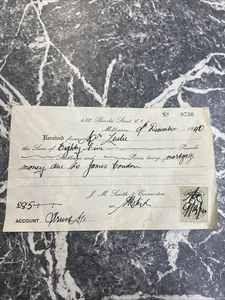 480 Bourke Street, C1
No 9730
Melbourne, 9th December 1940
Received from Mr Leslie
the Sum of Eighty Five Pounds
Shillings and Pence, being mortgage
money due to James Condon
J. M. Smith & Emmerton
£85 : - : -
ACCOUNT Private A/c